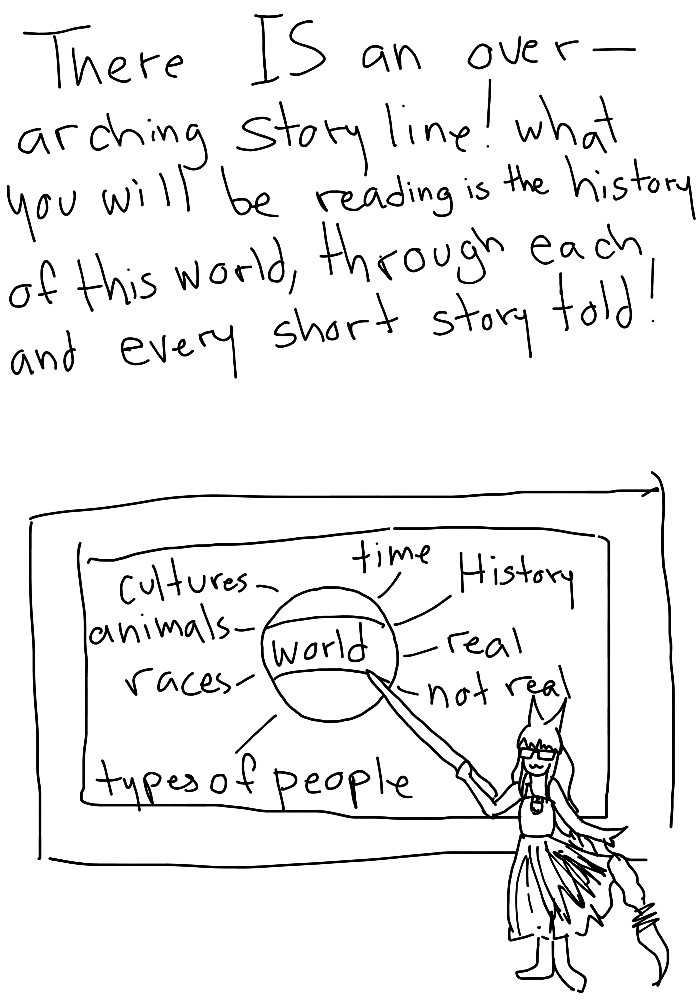 There IS an over-
arching story line! what
you will be reading is the history
of this world, through each
and every short story told!
time
cultures
History
animals
world
real
races
not real
types of people